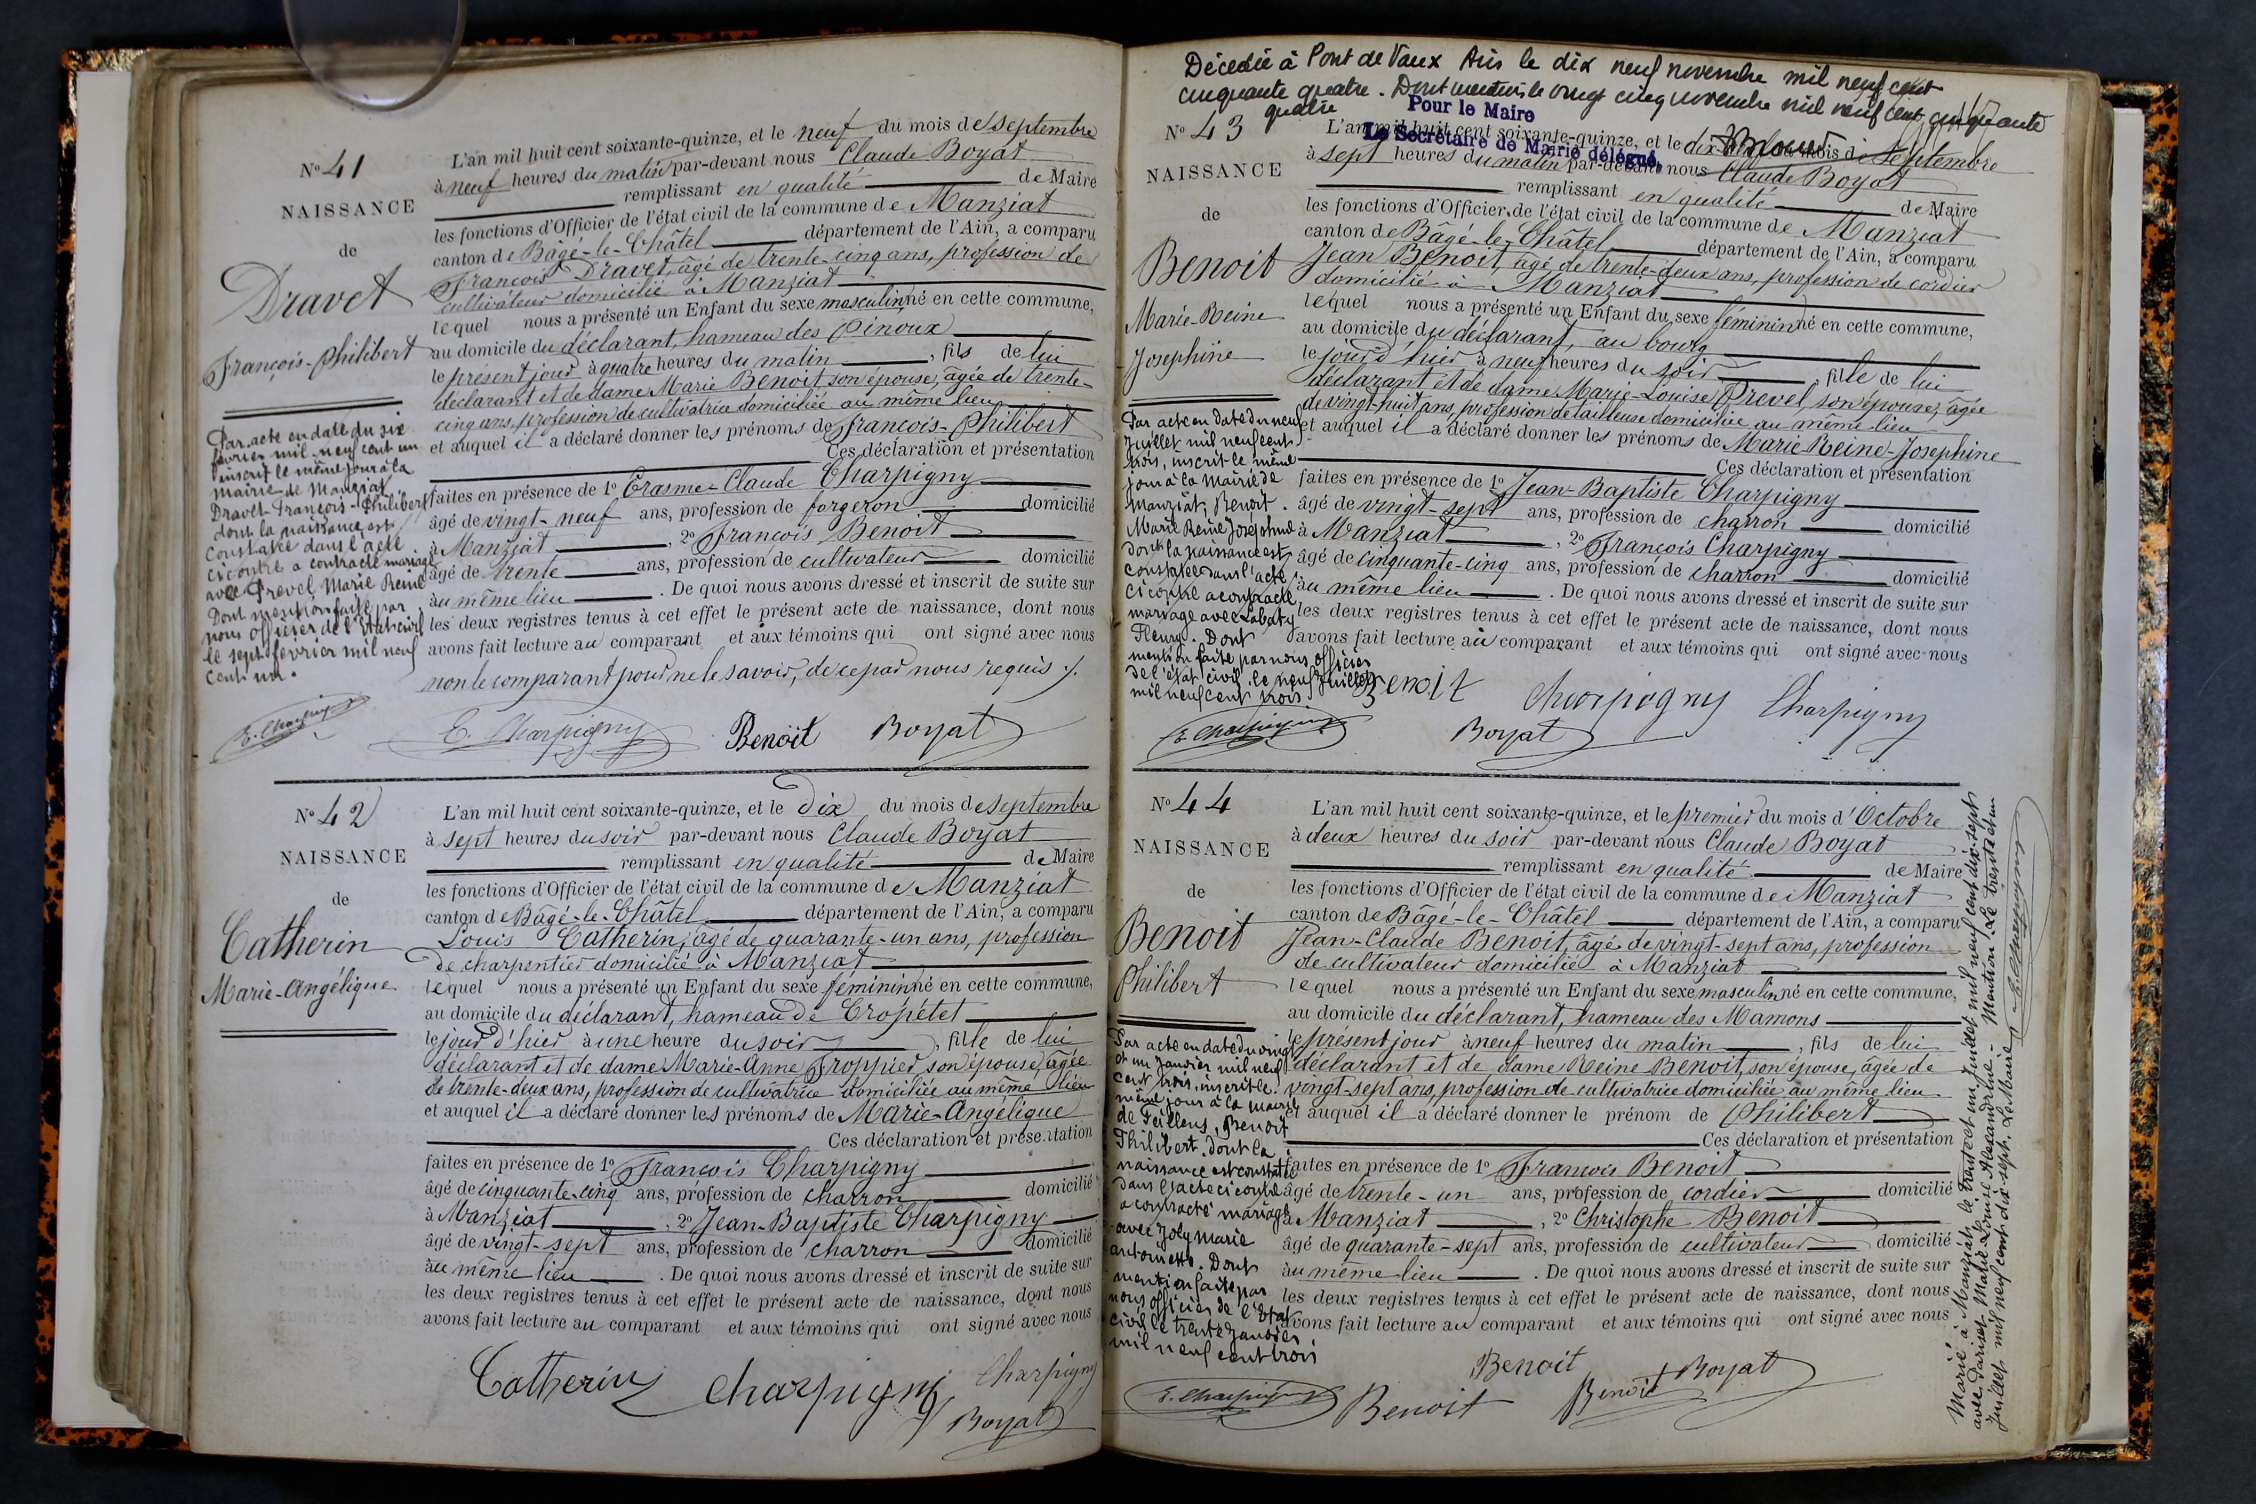 No 41
NAISSANCE
de
Dravet
François-Philibert
Par acte en date du six
février mil neuf cent un
inscrit le même jour à la
mairie de Manziat
Dravet François-Philibert
dont la naissance est
constatée dans l'acte
ci contre a contracté mariage
avec Prevel Marie Reine
Dont mention faite par
nous officier de l'état civil
le sept février mil neuf
cent un.
E. Charpigny
L'an mil huit cent soixante-quinze, et le neuf du mois de septembre
à neuf heures du matin par-devant nous Claude Boyat
remplissant en qualité de Maire
les fonctions d'Officier de l'état civil de la commune de Manziat
canton de Bâgé-le-Châtel département de l'Ain, a comparu
François Dravet, âgé de trente-cinq ans, profession de
cultivateur domicilié à Manziat
lequel nous a présenté un Enfant du sexe masculin né en cette commune,
au domicile du déclarant, hameau des Pinoux
le présent jour à quatre heures du matin, fils de lui
déclarant et de dame Marie Benoit, son épouse, âgée de trente-
cinq ans, profession de cultivatrice domiciliée au même lieu
et auquel il a déclaré donner les prénoms de François-Philibert
Ces déclaration et présentation
faites en présence de 1o Erasme-Claude Charpigny
âgé de vingt-neuf ans, profession de forgeron domicilié
à Manziat, 2o François Benoit
âgé de trente ans, profession de cultivateur domicilié
au même lieu. De quoi nous avons dressé et inscrit de suite sur
les deux registres tenus à cet effet le présent acte de naissance, dont nous
avons fait lecture au comparant et aux témoins qui ont signé avec nous
non le comparant pour ne le savoir, de ce par nous requis ./.
E. Charpigny Benoît Boyat
No 42
NAISSANCE
de
Catherin
Marie-Angélique
L'an mil huit cent soixante-quinze, et le dix du mois de septembre
à sept heures du soir par-devant nous Claude Boyat
remplissant en qualité de Maire
les fonctions d'Officier de l'état civil de la commune de Manziat
canton de Bâgé-le-Châtel département de l'Ain, a comparu
Louis Catherin, âgé de quarante-un ans, profession
de charpentier domicilié à Manziat
lequel nous a présenté un Enfant du sexe féminin né en cette commune,
au domicile du déclarant, hameau de Cropétet
le jour d'hier à une heure du soir, fille de lui
déclarant et de dame Marie-Anne Froppier son épouse, âgée
de trente-deux ans, profession de cultivatrice domiciliée au même lieu
et auquel il a déclaré donner les prénoms de Marie-Angélique
Ces déclaration et présentation
faites en présence de 1o François Charpigny
âgé de cinquante-cinq ans, profession de charron domicilié
à Manziat, 2o Jean-Baptiste Charpigny
âgé de vingt-sept ans, profession de charron domicilié
au même lieu. De quoi nous avons dressé et inscrit de suite sur
les deux registres tenus à cet effet le présent acte de naissance, dont nous
avons fait lecture au comparant et aux témoins qui ont signé avec nous
Catherin Charpigny Charpigny
Boyat
Décédée à Pont de Vaux Ain le dix neuf novembre mil neuf cent
cinquante quatre. Dont mention le vingt cinq novembre mil neuf cent cinquante
quatre
Pour le Maire
Le Secrétaire de Mairie délégué,
No 43
NAISSANCE
de
Benoit
Marie-Reine
Josephine
Par acte en date du neuf
Juillet mil neuf cent
trois, inscrit le même
jour à la mairie de
Manziat, Benoit
Marie Reine Josephine
dont la naissance est
constatée dans l'acte
ci contre a contracté
mariage avec Labaty
Fleury. Dont
mention faite par nous officier
de l'état civil le neuf Juillet
mil neuf cent trois
E. Charpigny
L'an mil huit cent soixante-quinze, et le du mois de septembre
à sept heures du matin par-devant nous Claude Boyat
remplissant en qualité de Maire
les fonctions d'Officier de l'état civil de la commune de Manziat
canton de Bâgé-le-Châtel département de l'Ain, a comparu
Jean Benoit, âgé de trente-deux ans, profession de cordier
domicilié à Manziat
lequel nous a présenté un Enfant du sexe féminin né en cette commune,
au domicile du déclarant, au bourg
le jour d'hier à neuf heures du soir, fille de lui
déclarant et de dame Marie-Louise Prevel, son épouse, âgée
de vingt-huit ans, profession de tailleuse domiciliée au même lieu
et auquel il a déclaré donner les prénoms de Marie Reine-Josephine
Ces déclaration et présentation
faites en présence de 1o Jean-Baptiste Charpigny
âgé de vingt-sept ans, profession de charron domicilié
à Manziat, 2o François Charpigny
âgé de cinquante-cinq ans, profession de charron domicilié
au même lieu. De quoi nous avons dressé et inscrit de suite sur
les deux registres tenus à cet effet le présent acte de naissance, dont nous
avons fait lecture au comparant et aux témoins qui ont signé avec nous
Benoit Charpigny Charpigny
Boyat
No 44
NAISSANCE
de
Benoit
Philibert
Par acte en date du vingt
et un Janvier mil neuf
cent trois, inscrit le
même jour à la mairie
de Feillens, Benoit
Philibert dont la
naissance est constatée
dans l'acte ci contre
a contracté mariage
avec Joly Marie
antoinette. Dont
mention faite par
nous officier de l'état
civil le trente Janvier
mil neuf cent trois
E. Charpigny
L'an mil huit cent soixante-quinze, et le premier du mois d'Octobre
à deux heures du soir par-devant nous Claude Boyat
remplissant en qualité de Maire
les fonctions d'Officier de l'état civil de la commune de Manziat
canton de Bâgé-le-Châtel département de l'Ain, a comparu
Jean-Claude Benoit, âgé de vingt-sept ans, profession
de cultivateur domicilié à Manziat
lequel nous a présenté un Enfant du sexe masculin né en cette commune,
au domicile du déclarant, hameau des Mamons
le présent jour à neuf heures du matin, fils de lui
déclarant et de dame Reine Benoit, son épouse, âgée de
vingt-sept ans, profession de cultivatrice domiciliée au même lieu
et auquel il a déclaré donner le prénom de Philibert
Ces déclaration et présentation
faites en présence de 1o François Benoit
âgé de trente-un ans, profession de cordier domicilié
à Manziat, 2o Christophe Benoit
âgé de quarante-sept ans, profession de cultivateur domicilié
au même lieu. De quoi nous avons dressé et inscrit de suite sur
les deux registres tenus à cet effet le présent acte de naissance, dont nous
avons fait lecture au comparant et aux témoins qui ont signé avec nous
Benoit Boyat
Benoit Benoit
Marié à Manziat le trente et un Juillet mil neuf cent dix-sept
avec Pariset Marie Louise Alexandrine - Mention. Le trente et un
Juillet mil neuf cent dix-sept. Le Maire E. Charpigny